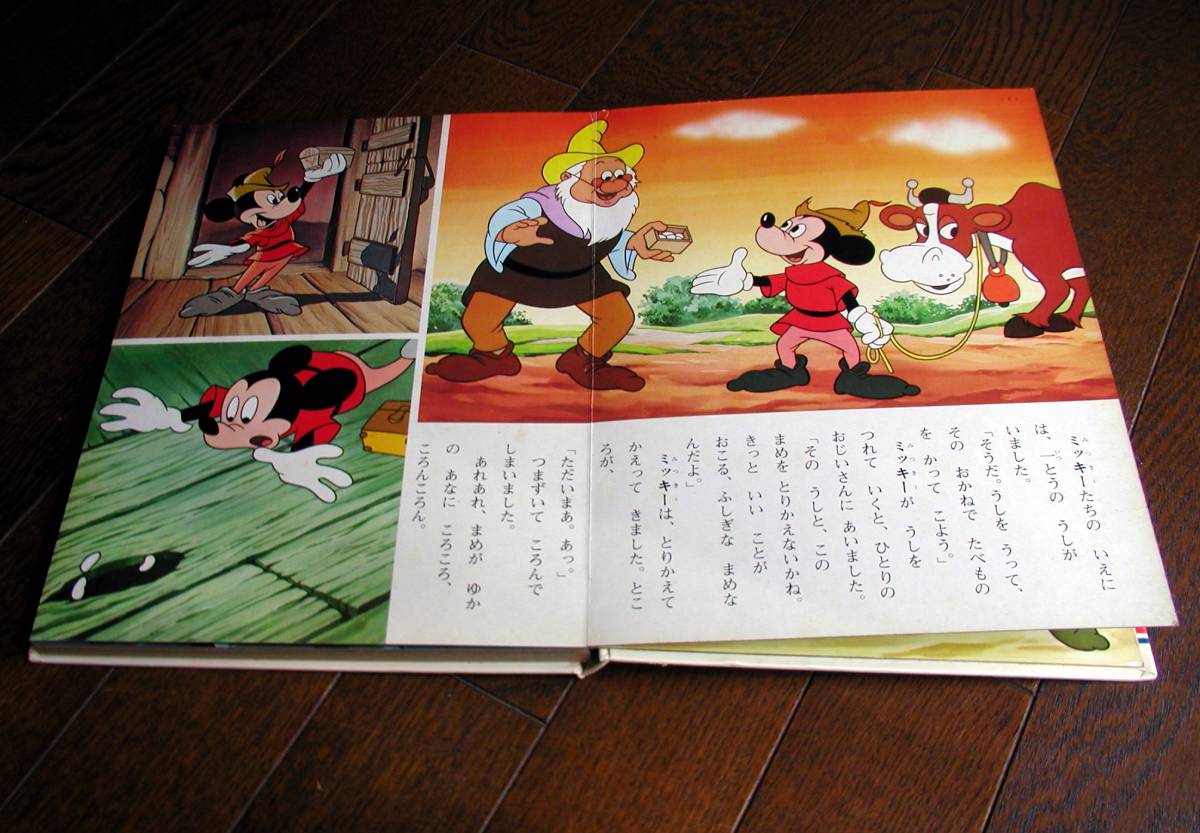 ミッキーたちの いえに
は、一とうの うしが
いました。
「そうだ。うしを うって、
その おかねで たべもの
を かって こよう。」
ミッキーが うしを
つれて いくと、ひとりの
おじいさんに あいました。
「その うしと、この
まめを とりかえないかね。
きっと いい ことが
おこる、ふしぎな まめな
んだよ。」
ミッキーは、とりかえて
かえって きました。とこ
ろが、
「ただいまあ。あっ。」
つまずいて ころんで
しまいました。
あれあれ、まめが ゆか
の あなに ころころ、
ころんころん。